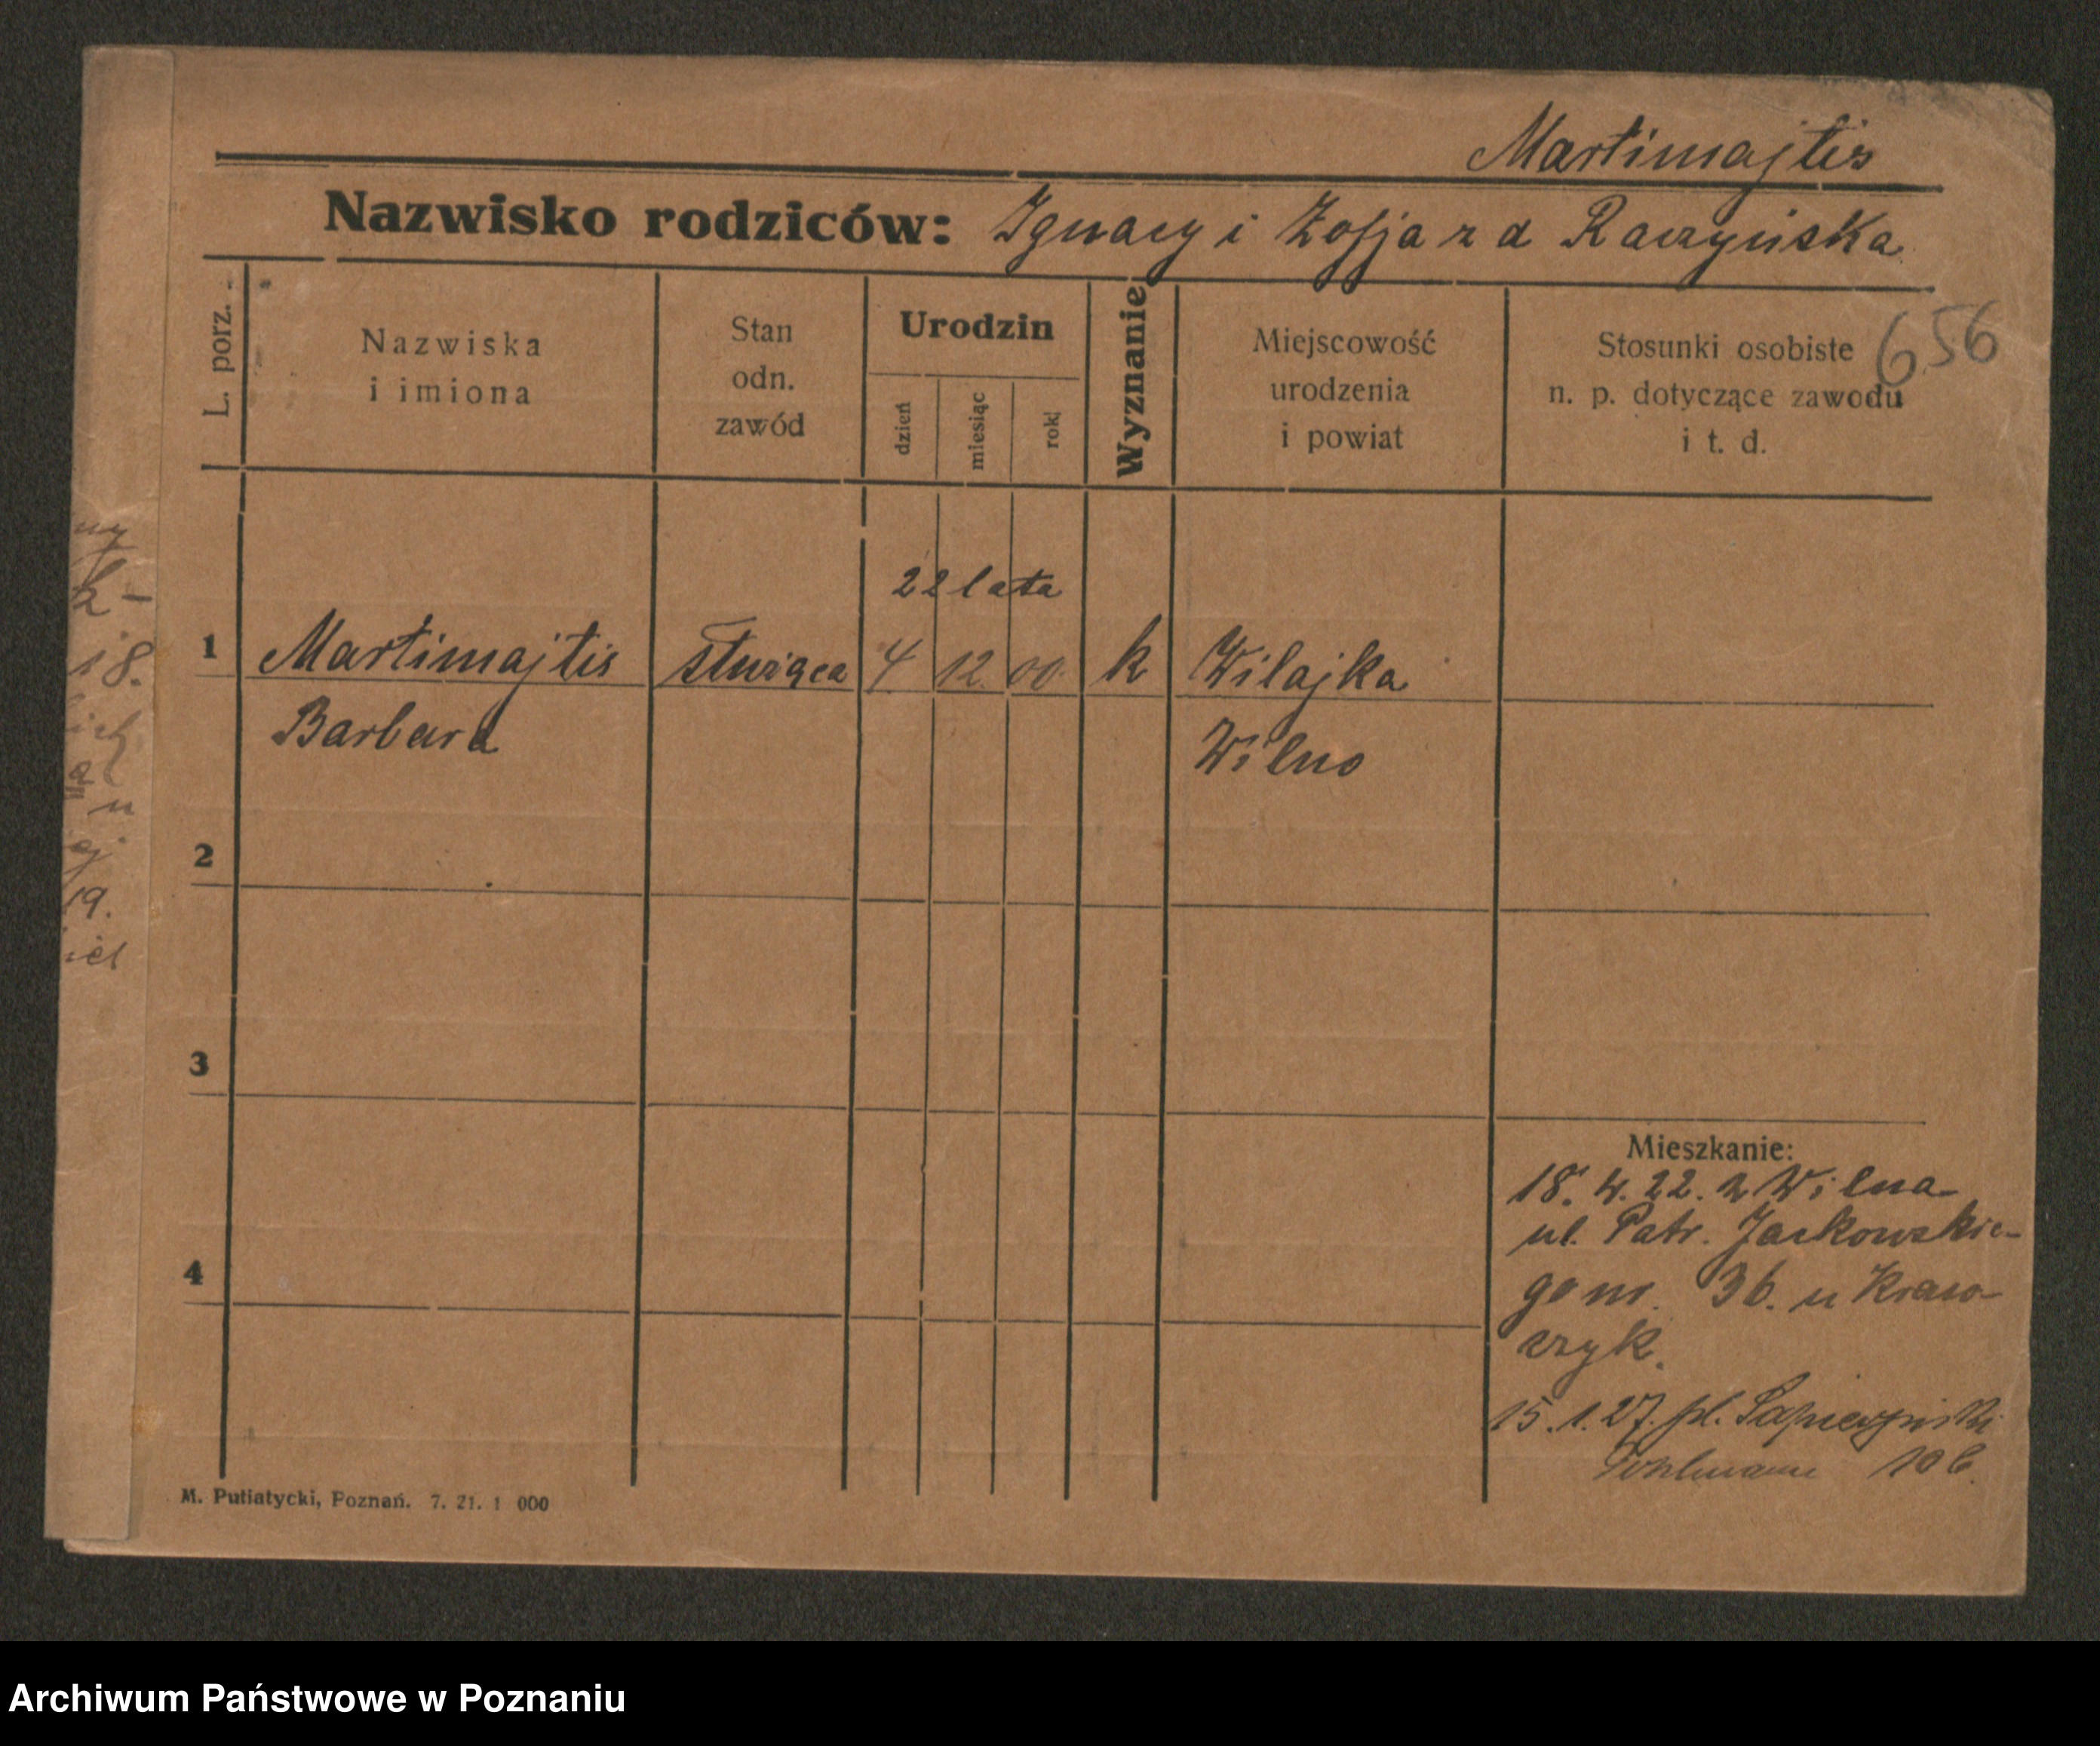 Martimajtis
Nazwisko rodziców: Ignacy i Zofja z d Raczyńska
656
L. porz.
Nazwiska
i imiona
Stan
odn.
zawód
Urodzin
dzień
miesiąc
rok
Wyznanie
Miejscowość
urodzenia
i powiat
Stosunki osobiste
n. p. dotyczące zawodu
i t. d.
22 lata
1 Martimajtis służąca 4 12. 00. k Wilajka
Barbara Wilno
2
3
4
Mieszkanie:
18. 4. 22. z Wilna
ul. Patr. Jackowskie-
go nr. 36. u Kraw-
czyk.
15. 1. 27. pl. Sapieżyński
10 b.
M. Putiatycki, Poznań. 7. 21. 1 000
18.
19.
Archiwum Państwowe w Poznaniu